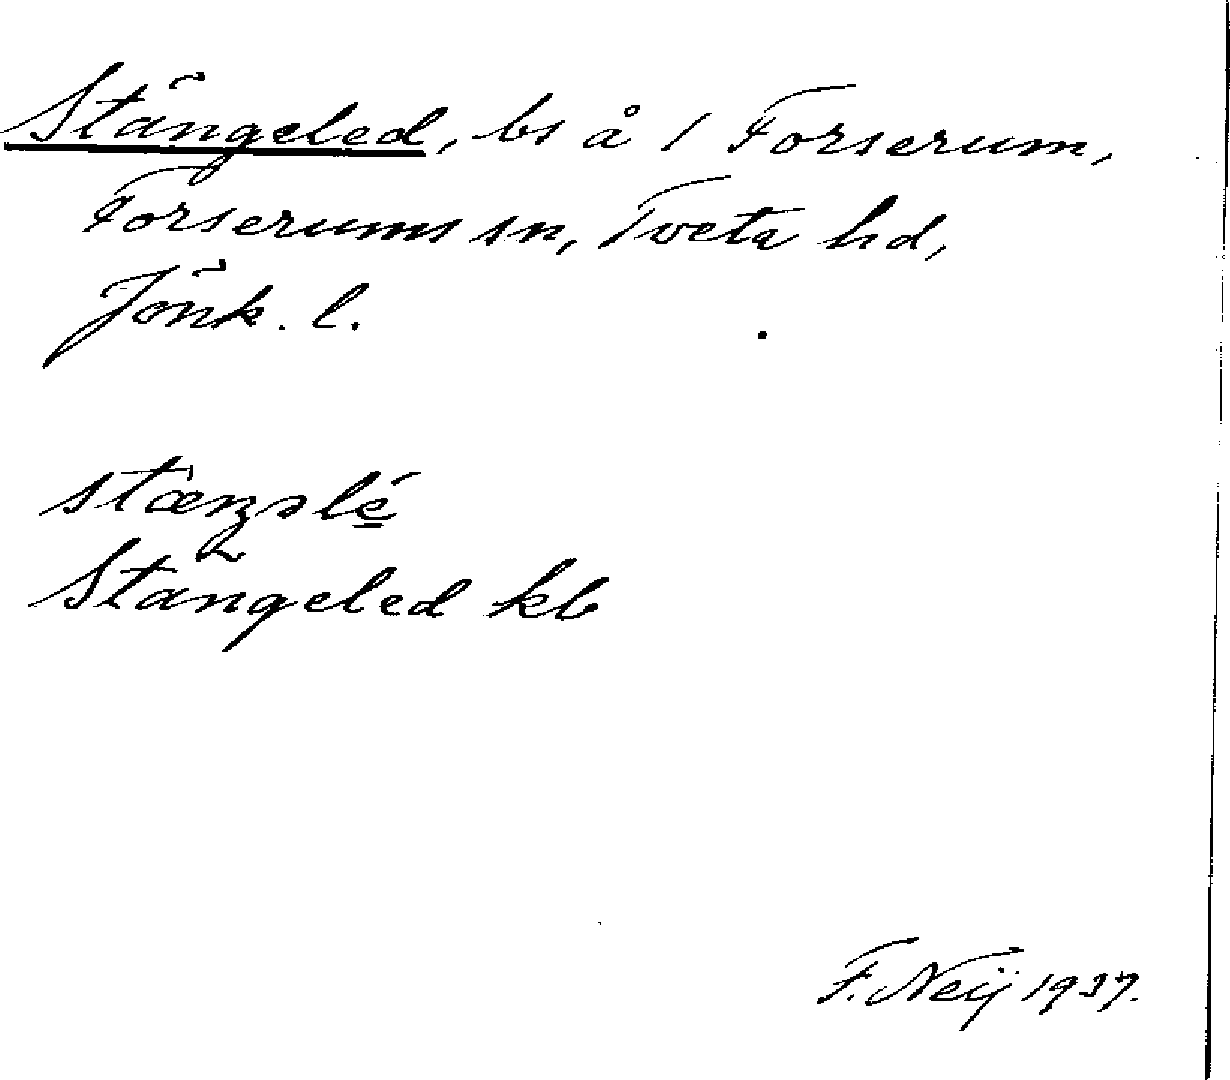 Stängeled, bs å 1 Forserum,
Forserums sn, Tveta hd,
Jönk. l.
Stängeled kb
F. Neij 1937.